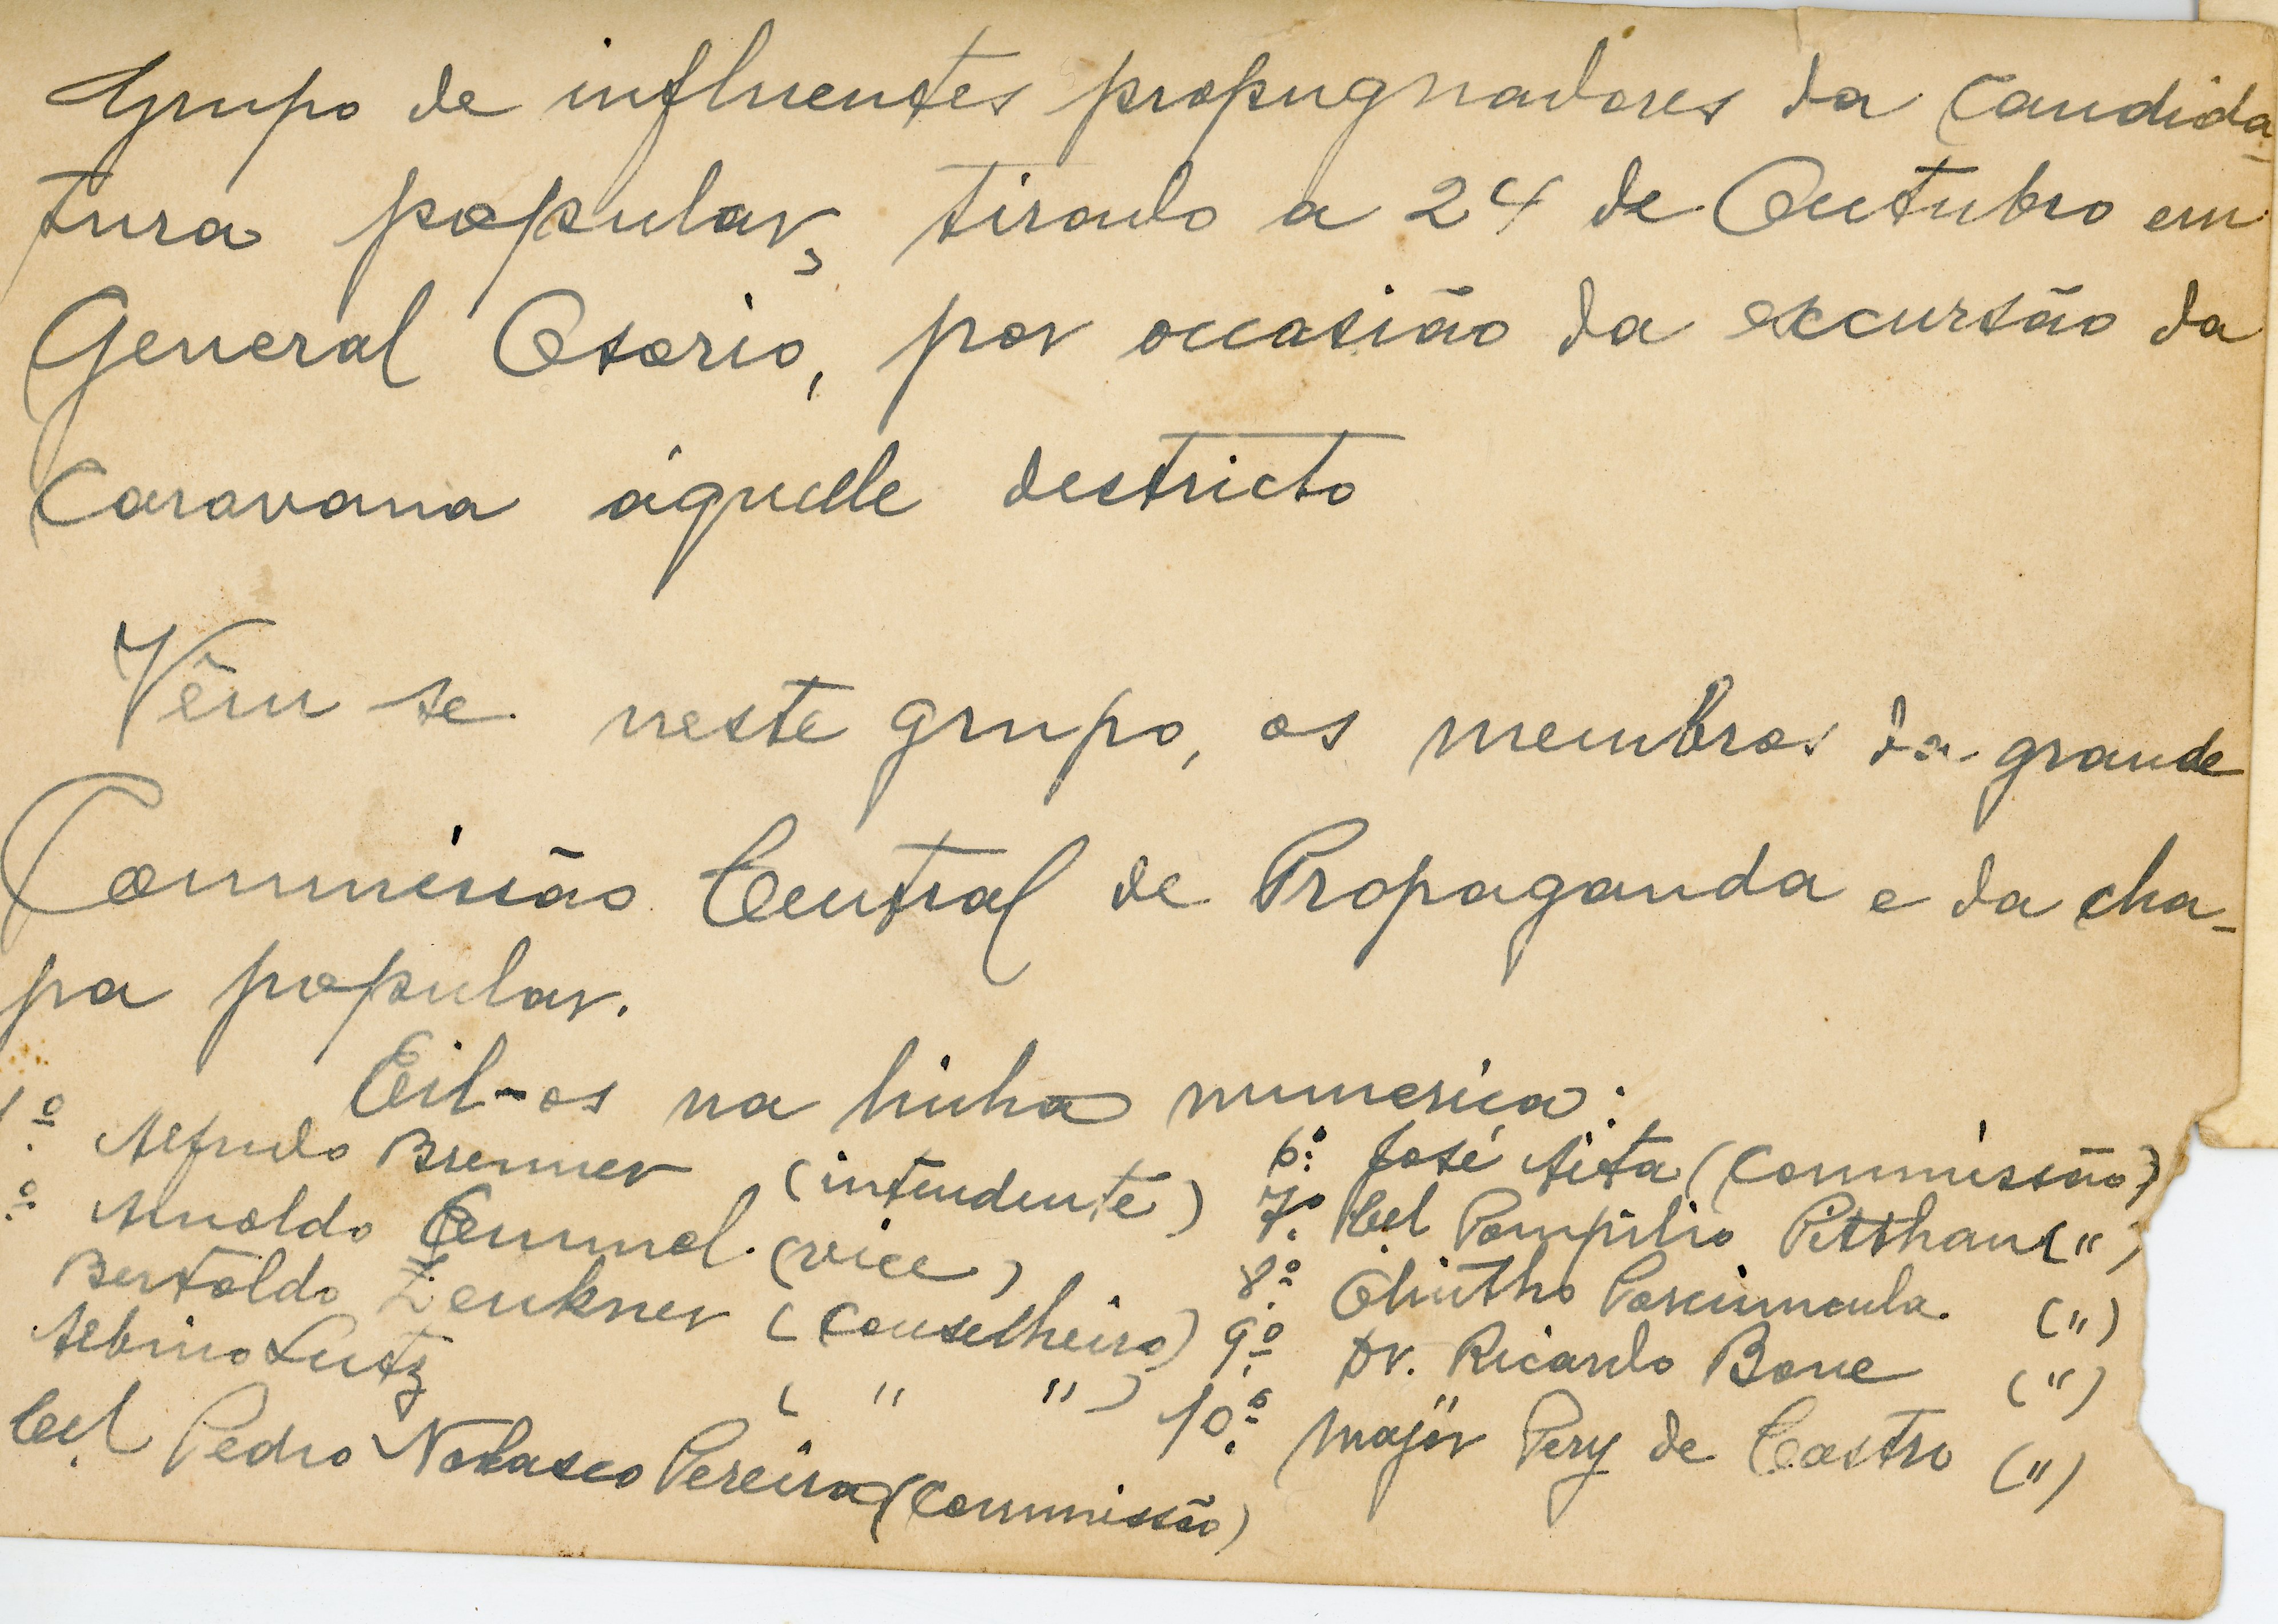 Grupo de influentes propugnadores da candida-
tura popular, tirado a 24 de Outubro em
General Osorio, por occasião da excursão da
Caravana áquelle destricto
Vêm se neste grupo, os membros da grande
Commissão Central de Propaganda e da cha-
pa popular.
Eil-os na linha numerica:
1º Alfredo Brenner (intendente)
º Arnoldo Emmel (vice)
Bertoldo Zenkner (Conselheiro)
Albino Lutz ( " " )
Cel Pedro Nolasco Pereira (Commissão)
6º José Aita (Commissão)
7º Cel Pompilio Pitthan ( " )
8º Olintho Porciuncula. ( " )
9º Dr. Ricardo Bone ( " )
10º major Pery de Castro ( " )